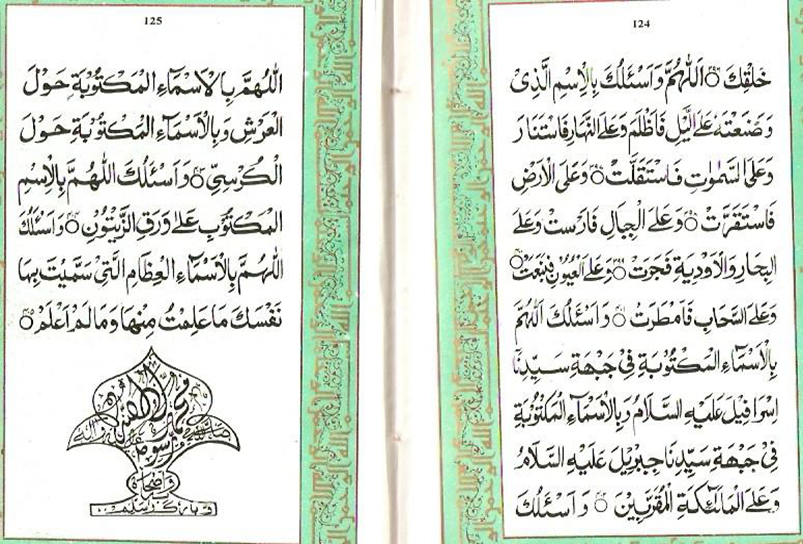 124
خَلْقِكَ ۝ اَللّٰهُمَّ وَاَسْئَلُكَ بِالْاِسْمِ الَّذِىْ
وَضَعْتَهٗ عَلَى الَّيْلِ فَاَظْلَمَ وَعَلَى النَّهَارِ فَاسْتَنَارَ
وَعَلَى السَّمٰوٰتِ فَاسْتَقَلَّتْ ۝ وَعَلَى الْاَرْضِ
فَاسْتَقَرَّتْ ۝ وَعَلَى الْجِبَالِ فَارَسْتْ وَعَلَى
الْبِحَارِ وَالْاَوْدِيَةِ فَجَرَتْ ۝ وَعَلَى الْعُيُوْنِ فَنَبَعَتْ ۝
وَعَلَى السَّحَابِ فَاَمْطَرَتْ ۝ وَاَسْئَلُكَ اللّٰهُمَّ
بِالْاَسْمَآءِ الْمَكْتُوْبَةِ فِىْ جَبْهَةِ سَيِّدِنَا
اِسْرَافِيْلَ عَلَيْهِ السَّلَامُ وَبِالْاَسْمَآءِ الْمَكْتُوْبَةِ
فِىْ جَبْهَةِ سَيِّدِنَا جِبْرِيْلَ عَلَيْهِ السَّلَامُ
وَعَلَى الْمَلٰٓئِكَةِ الْمُقَرَّبِيْنَ ۝ وَاَسْئَلُكَ
125
اَللّٰهُمَّ بِالْاَسْمَآءِ الْمَكْتُوْبَةِ حَوْلَ
الْعَرْشِ وَبِالْاَسْمَآءِ الْمَكْتُوْبَةِ حَوْلَ
الْكُرْسِيِّ ۝ وَاَسْئَلُكَ اللّٰهُمَّ بِالْاِسْمِ
الْمَكْتُوْبِ عَلٰى وَرَقِ الزَّيْتُوْنِ ۝ وَاَسْئَلُكَ
اللّٰهُمَّ بِالْاَسْمَآءِ الْعِظَامِ الَّتِىْ سَمَّيْتَ بِهَا
نَفْسَكَ مَا عَلِمْتُ مِنْهَا وَمَا لَمْ اَعْلَمْ ۝
وبارك وسلم